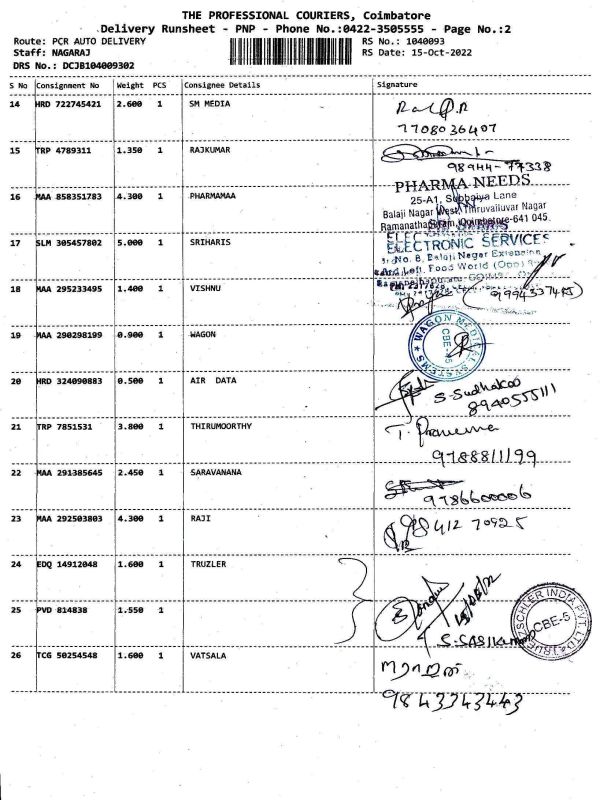 THE PROFESSIONAL COURIERS, Coimbatore
Delivery Runsheet - PNP - Phone No.:0422-3505555 - Page No.:2
Route: PCR AUTO DELIVERY RS No.: 1040093
Staff: NAGARAJ RS Date: 15-Oct-2022
DRS No.: DCJB104009302
S No Consignment No Weight PCS Consignee Details Signature
14 HRD 722745421 2.600 1 SM MEDIA
7708036407
15 TRP 4789311 1.350 1 RAJKUMAR
98944-77338
PHARMA NEEDS
16 MAA 858351783 4.300 1 PHARMAMAA 25-A1, Subbaiya Lane
Balaji Nagar West, Thiruvalluvar Nagar
Ramanathapuram, Coimbatore-641 045.
17 SLM 305457802 5.000 1 SRIHARIS
ELECTRONIC SERVICES
No. 8, Balaji Nagar Extension
And Left. Food World (Opp)
18 MAA 295233495 1.400 1 VISHNU
19 MAA 290298199 0.900 1 WAGON
WAGON MEDICAL SYSTEMS
CBE-45
20 HRD 324090883 0.500 1 AIR DATA
S-Sudhakar
8940555111
21 TRP 7851531 3.800 1 THIRUMOORTHY
9788811199
22 MAA 291385645 2.450 1 SARAVANANA
9786600006
23 MAA 292503803 4.300 1 RAJI
98412 70925
24 EDQ 14912048 1.600 1 TRUZLER
25 PVD 814838 1.550 1
INDIA PVT. LTD
CBE-5
S-SASIKumar
26 TCG 50254548 1.600 1 VATSALA
9843343443